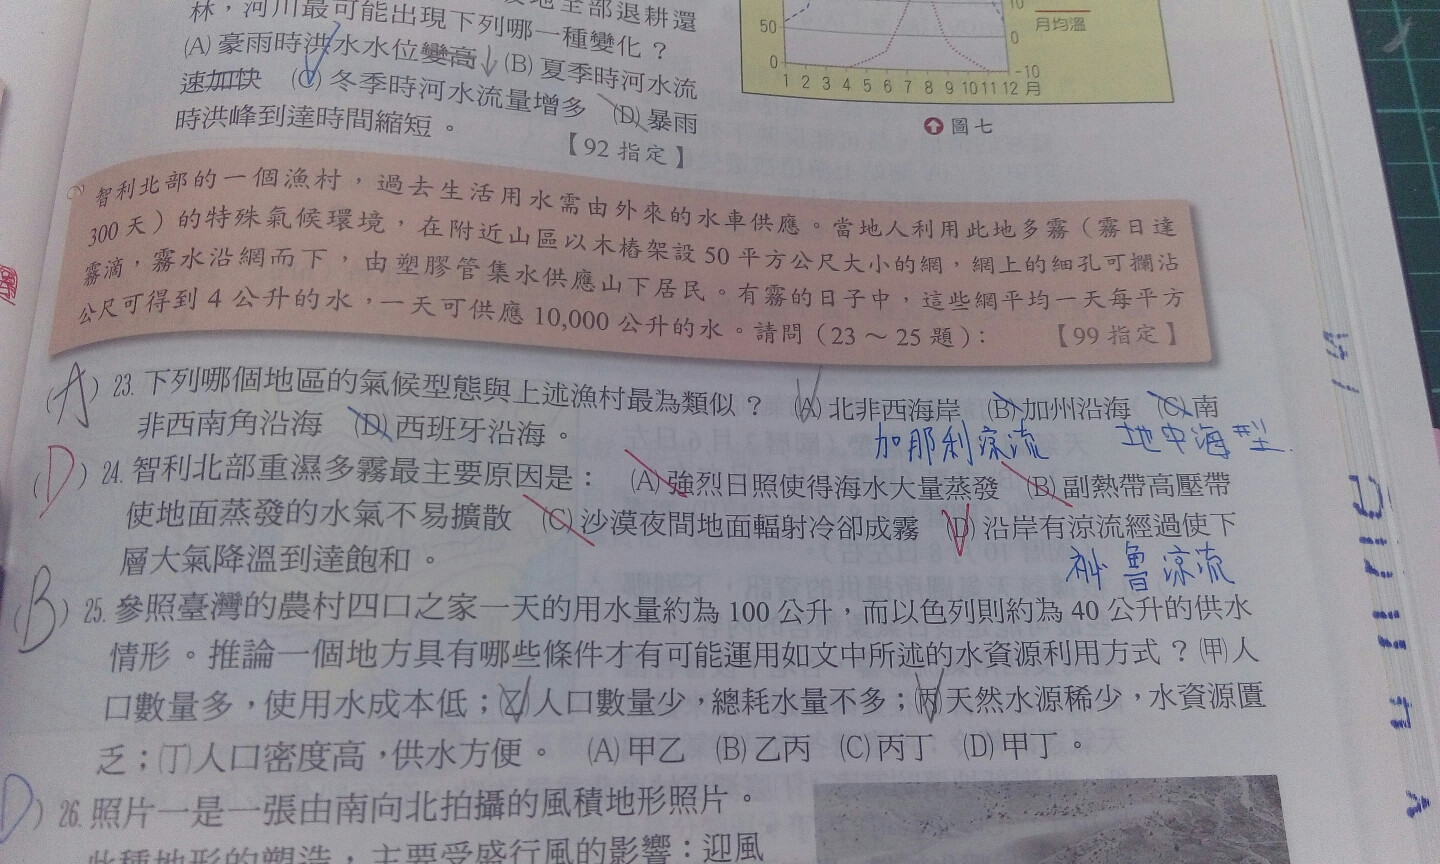 地全部退耕還
林，河川最可能出現下列哪一種變化？
(A)豪雨時洪水水位變高 (B)夏季時河水流
速加快 (C)冬季時河水流量增多 (D)暴雨
時洪峰到達時間縮短。
【92 指定】
50
0
10
0
-10
月均溫
1 2 3 4 5 6 7 8 9 10 11 12 月
圖七
智利北部的一個漁村，過去生活用水需由外來的水車供應。當地人利用此地多霧（霧日達
300 天）的特殊氣候環境，在附近山區以木樁架設 50 平方公尺大小的網，網上的細孔可攔沾
霧滴，霧水沿網而下，由塑膠管集水供應山下居民。有霧的日子中，這些網平均一天每平方
公尺可得到 4 公升的水，一天可供應 10,000 公升的水。請問（23～25 題）： 【99 指定】
(A) 23. 下列哪個地區的氣候型態與上述漁村最為類似？ (A)北非西海岸 (B)加州沿海 (C)南
非西南角沿海 (D)西班牙沿海。
加那利涼流 地中海型
(D) 24. 智利北部重濕多霧最主要原因是： (A)強烈日照使得海水大量蒸發 (B)副熱帶高壓帶
使地面蒸發的水氣不易擴散 (C)沙漠夜間地面輻射冷卻成霧 (D)沿岸有涼流經過使下
層大氣降溫到達飽和。
祕魯涼流
(B) 25. 參照臺灣的農村四口之家一天的用水量約為 100 公升，而以色列則約為 40 公升的供水
情形。推論一個地方具有哪些條件才有可能運用如文中所述的水資源利用方式？(甲)人
口數量多，使用水成本低；(乙)人口數量少，總耗水量不多；(丙)天然水源稀少，水資源匱
乏；(丁)人口密度高，供水方便。 (A)甲乙 (B)乙丙 (C)丙丁 (D)甲丁。
D) 26. 照片一是一張由南向北拍攝的風積地形照片。
此種地形的塑造，主要受盛行風的影響：迎風